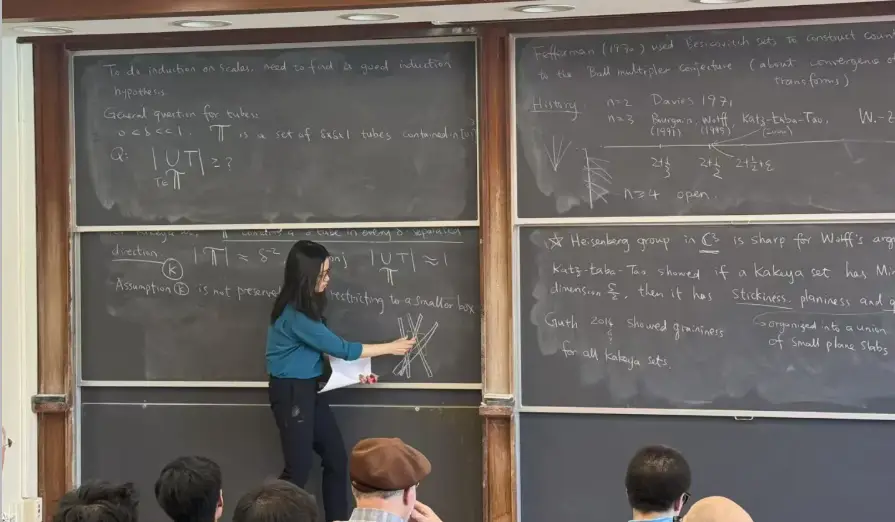 To do induction on scales, need to find a good induction
hypothesis.
General question for tubes:
0 < δ << 1. 𝕋 is a set of δxδx1 tubes contained in
Q: | ∪ T | ≥ ?
T∈𝕋
direction (K) |𝕋| ≈ δ^-2 | ∪ T | ≈ 1
𝕋
Assumption (K) is not preserve restricting to a smaller box
Fefferman (1970) used Besicovitch sets to construct
to the Ball multiplier conjecture (about convergence of
transforms)
History: n=2 Davies 1971
n=3 Bourgain, Wolff, Katz-Łaba-Tao, W.-
(1991) (1995) (2000)
2+1/3 2+1/2 2+1/2+ε
n≥4 open.
☆ Heisenberg group in ℂ^3 is sharp for Wolff's
Katz-Łaba-Tao showed if a Kakeya set has
dimension 5/2, then it has stickiness, planiness and
organized into a union
of small plane slabs
Guth 2014 showed graininess
for all Kakeya sets.